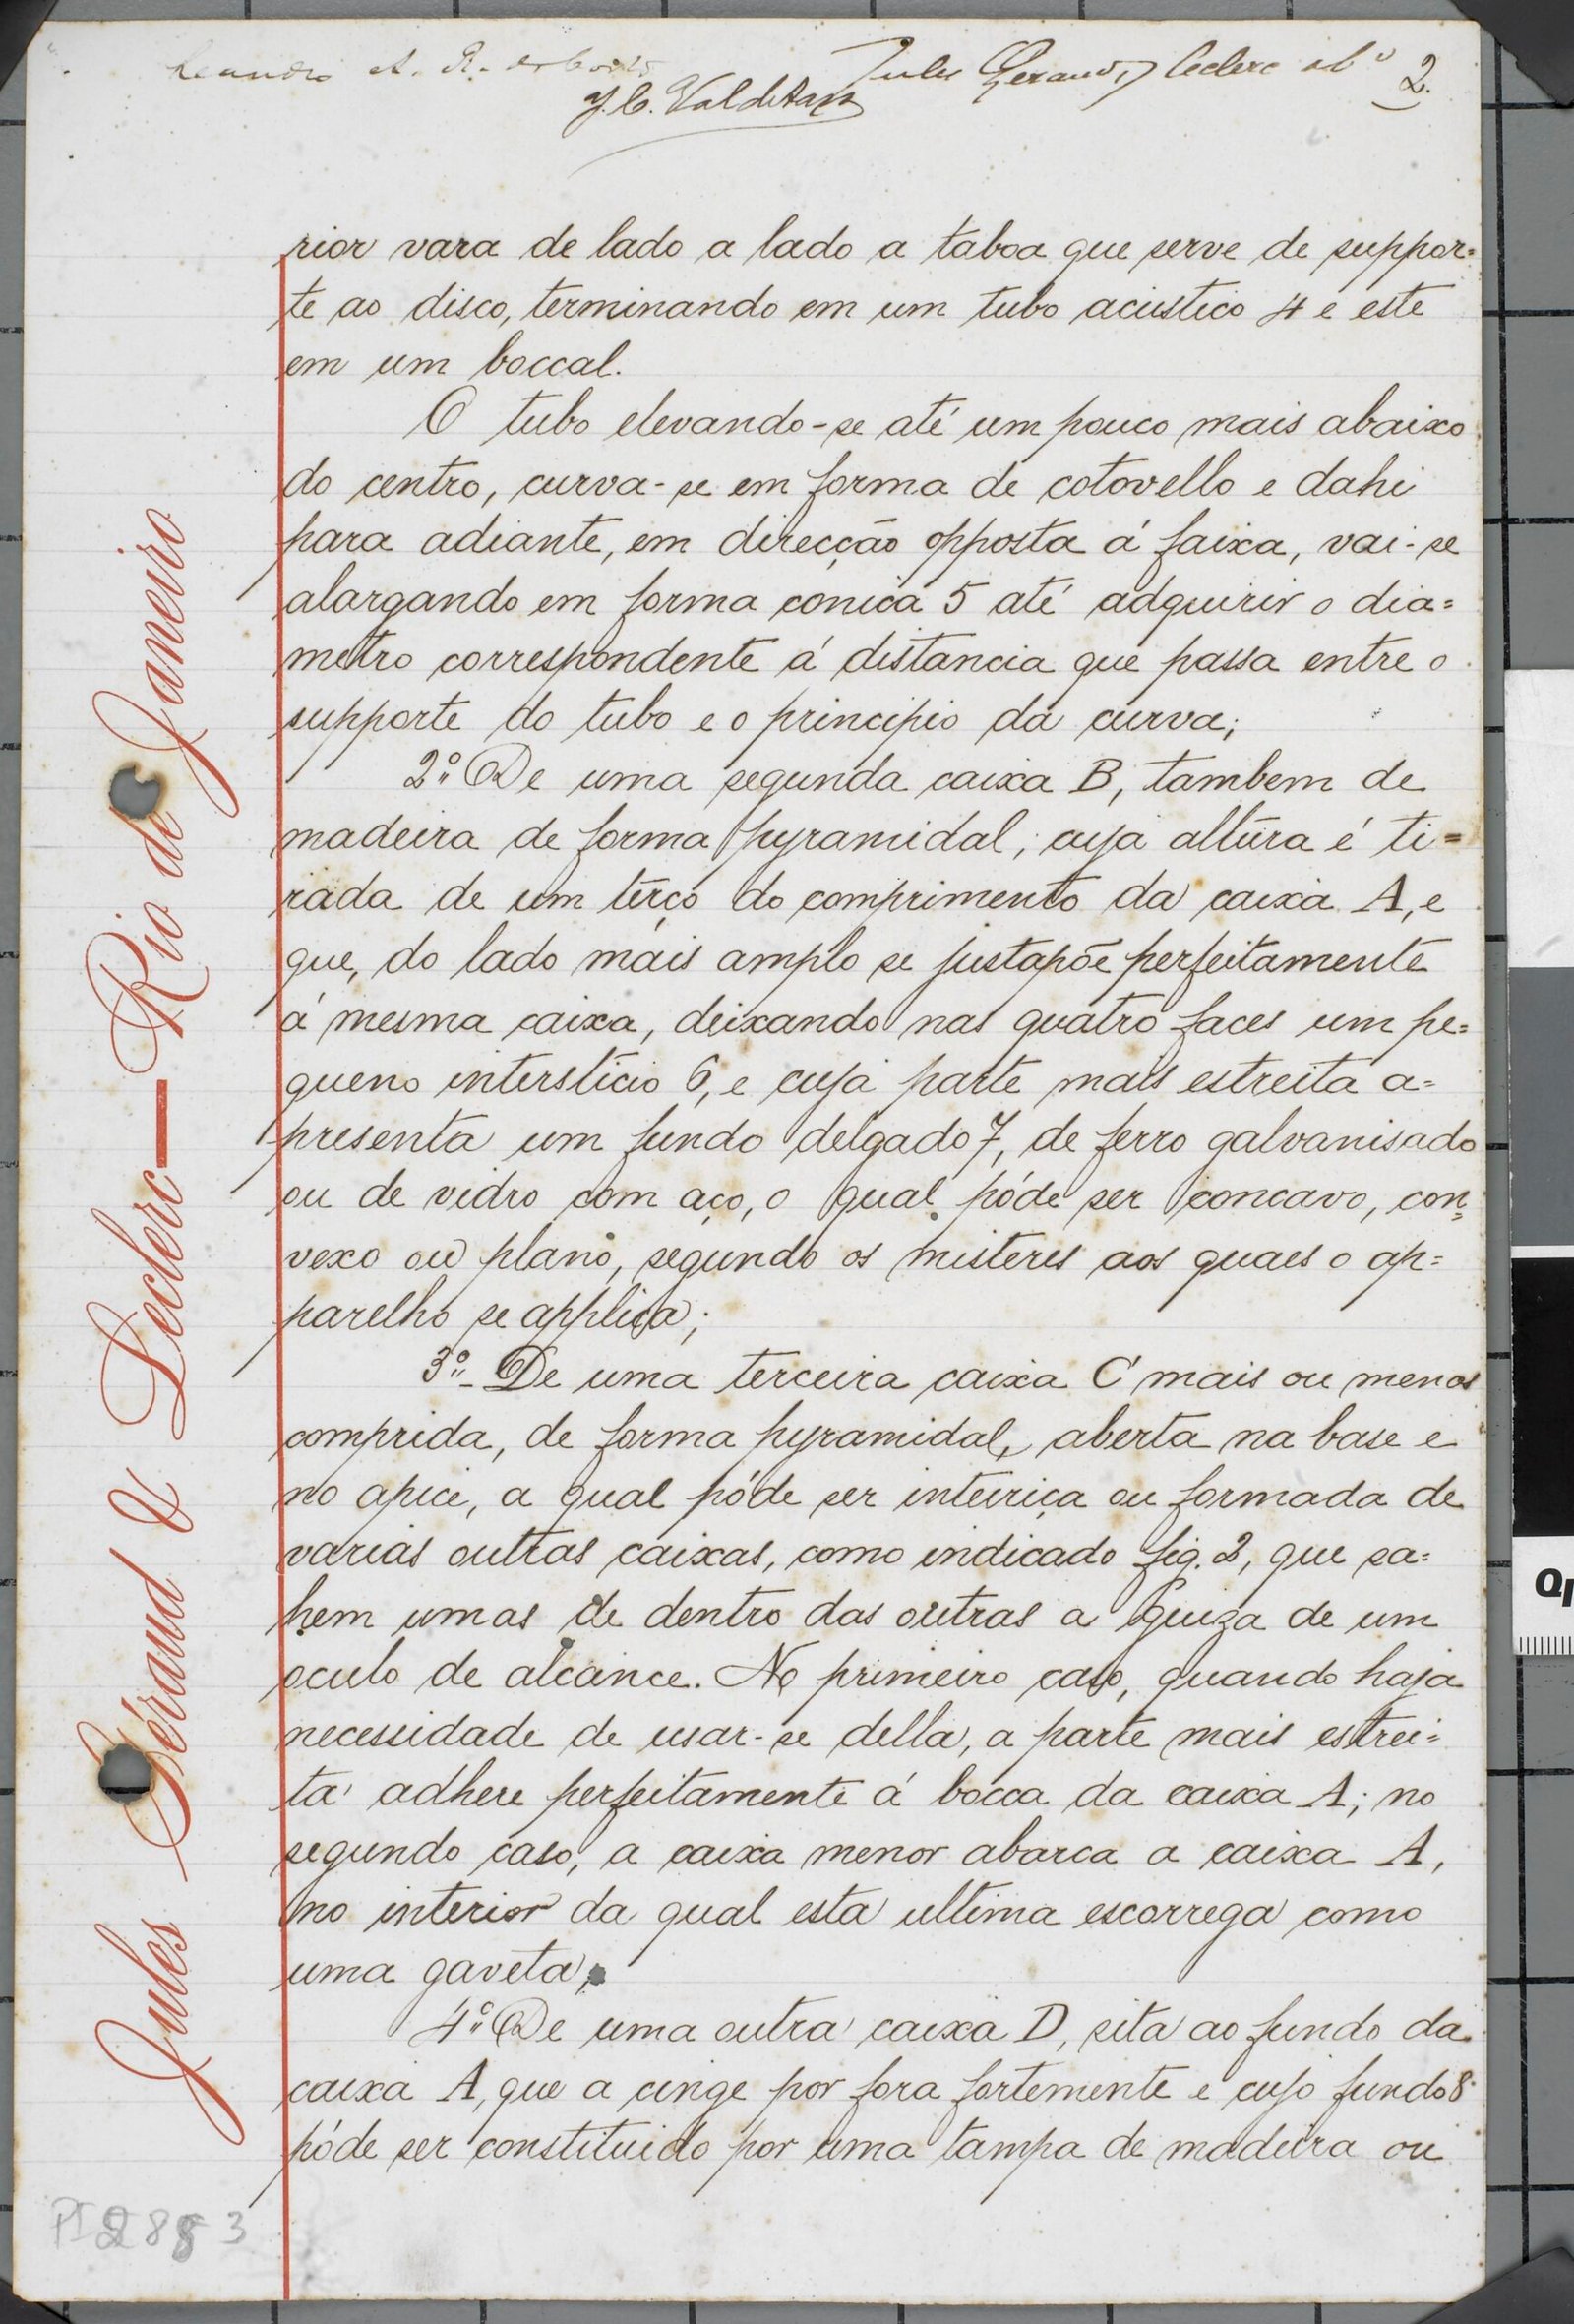 Jules Geraud, Leclerc & Cº 2.
J. C. Valdetaro
rior vara de lado a lado a taboa que serve de suppor=
te ao disco, terminando em um tubo acustico 4 e este
em um boccal.
O tubo elevando-se até um pouco mais abaixo
do centro, curva-se em forma de cotovello e dahi
para adiante, em direcção opposta á faixa, vai-se
alargando em forma conica 5 até adquirir o dia=
metro correspondente á distancia que passa entre o
supporte do tubo e o principio da curva;
2º De uma segunda caixa B, tambem de
madeira de forma pyramidal, cuja altura é ti=
rada de um terço do comprimento da caixa A, e
que, do lado mais amplo se justapõe perfeitamente
á mesma caixa, deixando nas quatro faces um pe=
queno intersticio 6, e cuja parte mais estreita a=
presenta um fundo delgado 7, de ferro galvanisado
ou de vidro com aço, o qual póde ser concavo, con=
vexo ou plano, segundo os misteres aos quaes o ap=
parelho se applica;
3º - De uma terceira caixa C mais ou menos
comprida, de forma pyramidal, aberta na base e
no apice, a qual póde ser inteiriça ou formada de
varias outras caixas, como indicado fig. 2, que sa=
hem umas de dentro das outras a guiza de um
oculo de alcance. No primeiro caso, quando haja
necessidade de usar-se della, a parte mais estrei=
ta adhere perfeitamente á bocca da caixa A; no
segundo caso, a caixa menor abarca a caixa A,
no interior da qual esta ultima escorrega como
uma gaveta;
4º De uma outra caixa D, sita ao fundo da
caixa A, que a cinge por fora fortemente e cujo fundo 8
póde ser constituido por uma tampa de madeira ou
Jules Géraud & Leclerc — Rio de Janeiro